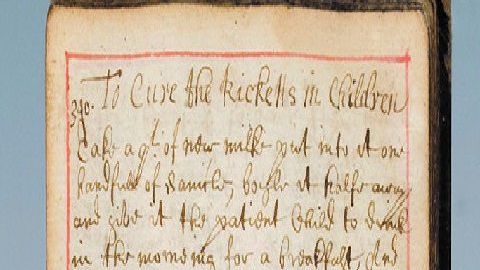 390. To Cure the Ricketts in Children
Take a qt. of new milke put into it one
handfull of Sanicle, boyle it halfe away
and give it the patient Child to drink
in the morneing for a breakfast, And